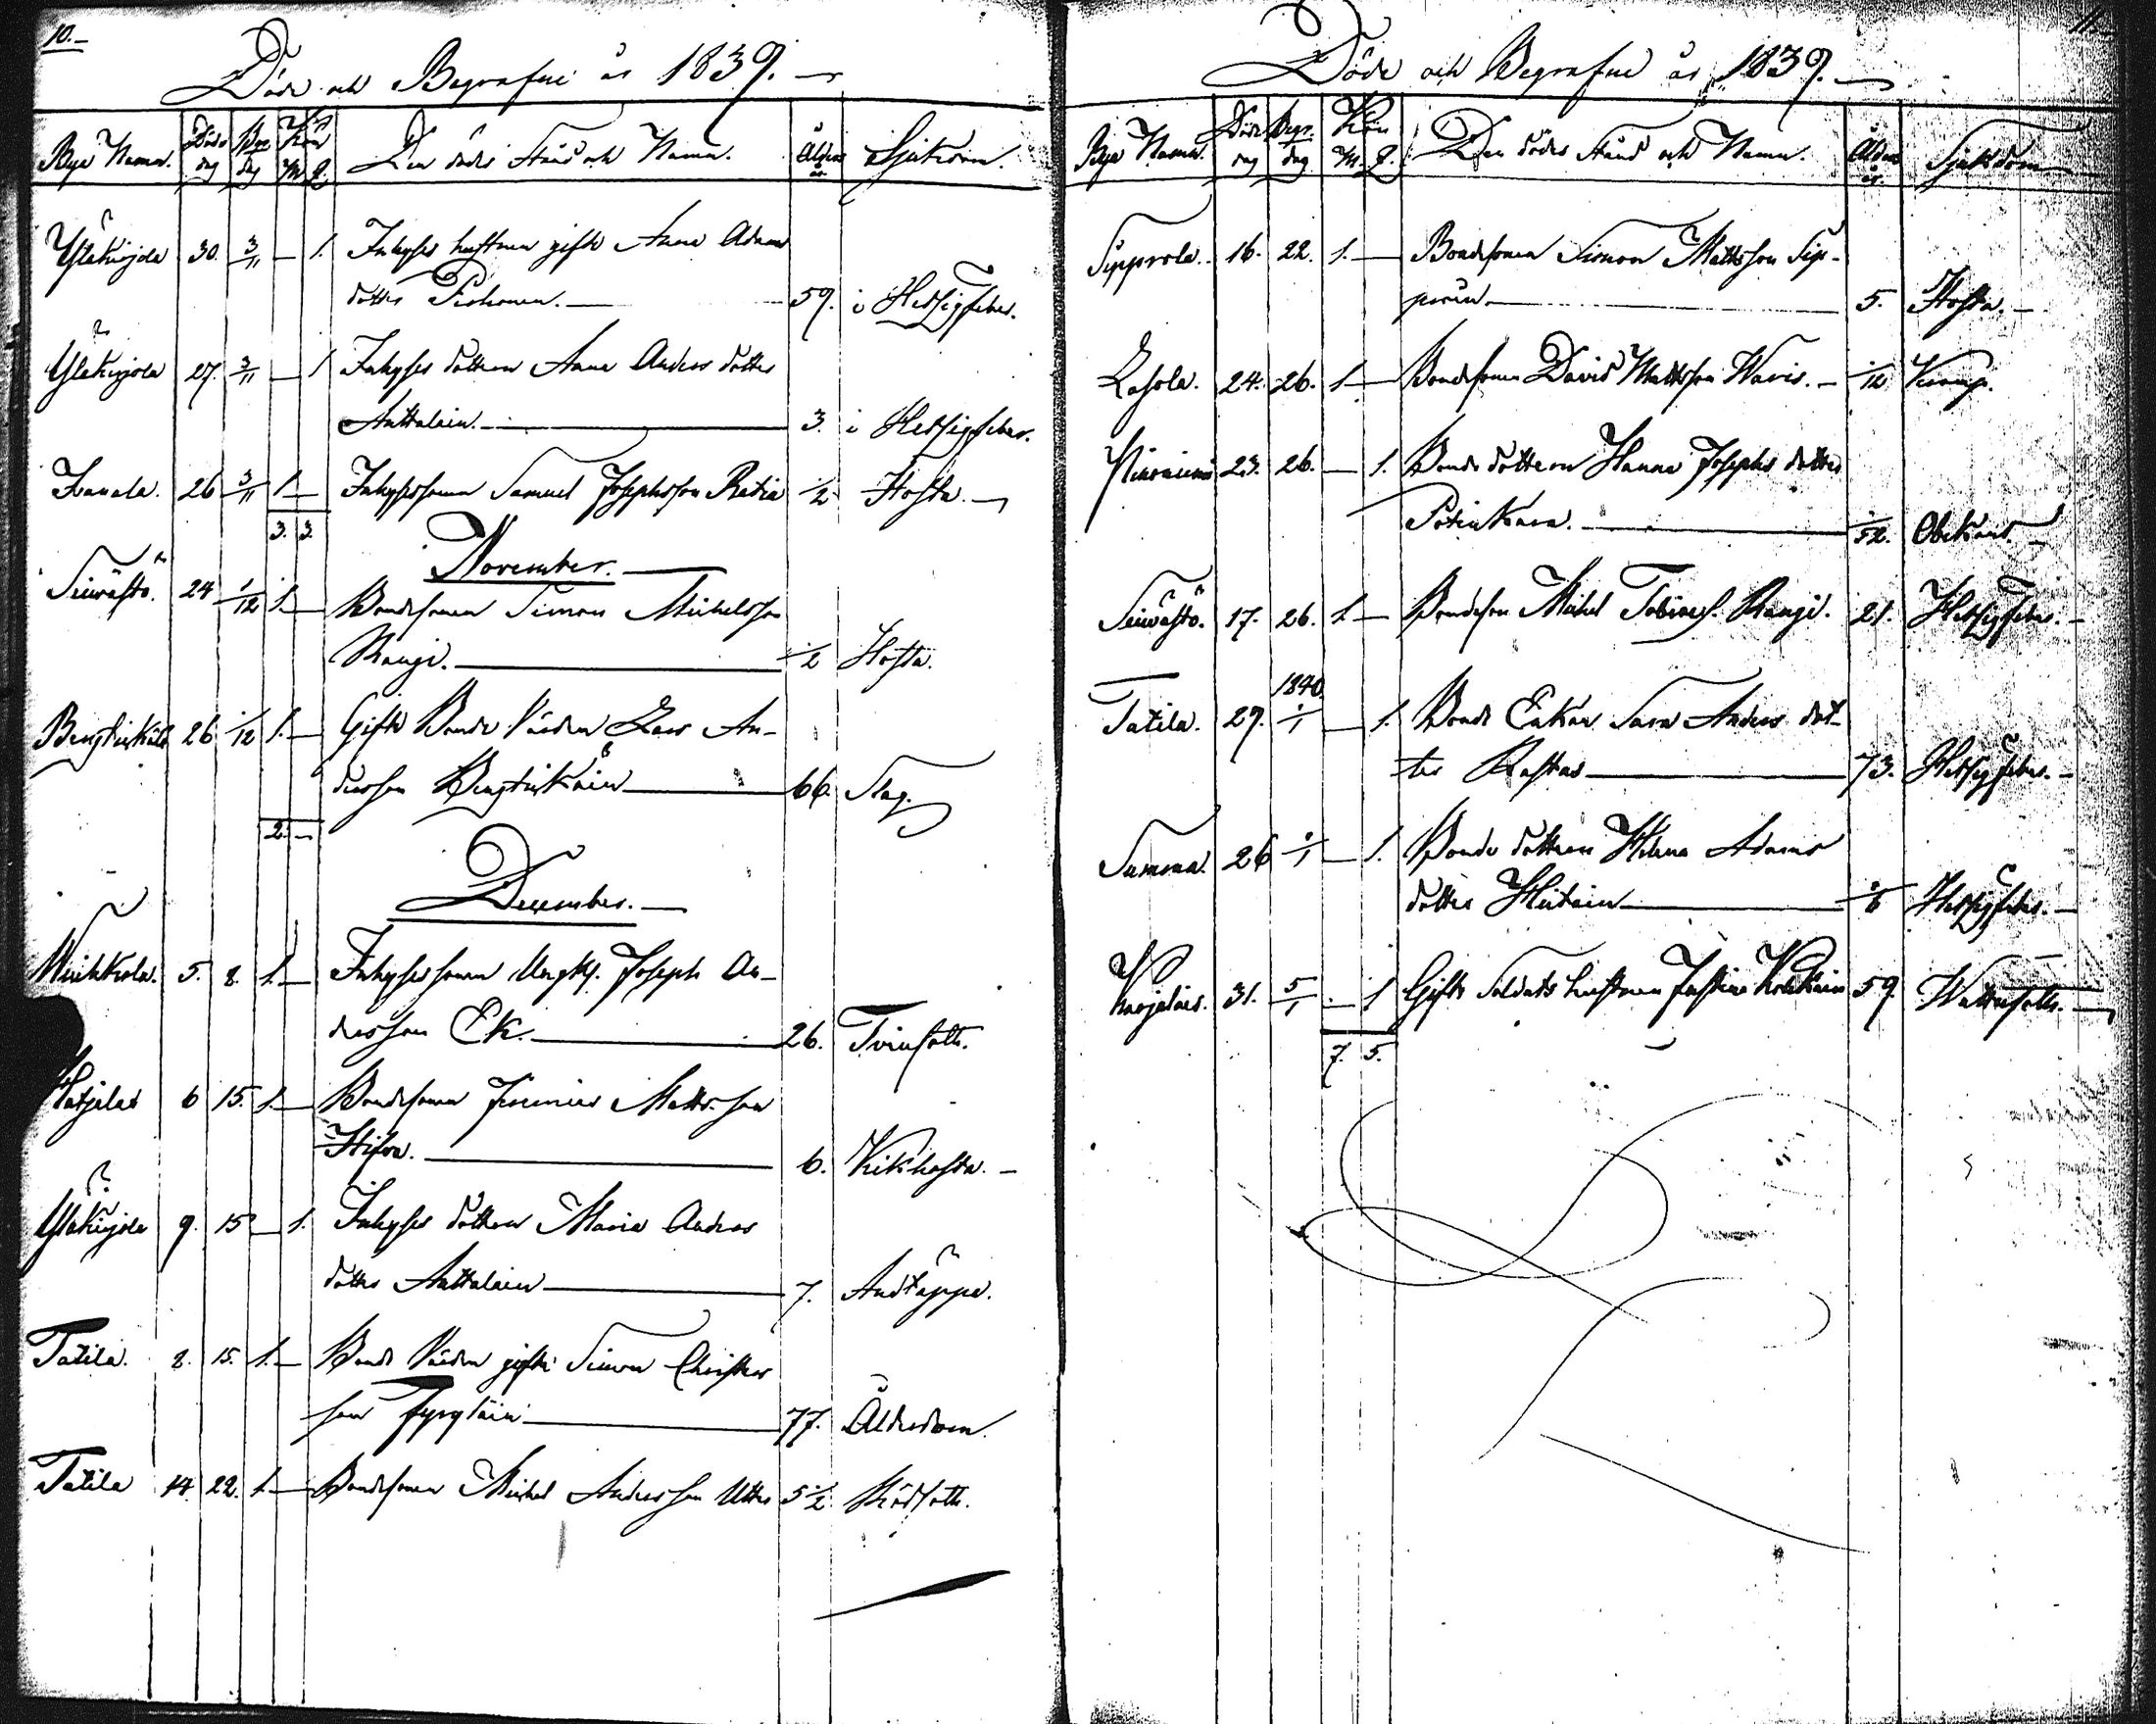 10.
Döde och Begrafne år 1839.
Bya Namn. Döds dag Begr. dag Kön M. Q. Den dödes Stånd och Namn. Ålder år Sjukdom.
Yläkirjola 30. 3/11 — 1. Inhyses hustrun gift Anna Adams
dotter Pishonen. — 59. i Hetsigfeber.
Yläkirjola 27. 3/11 — 1 Inhyses dottren Anna Anders dotter
Anttalain. — 3. i Hetsigfeber.
Ivanala. 26 3/11 1 — Inhysessonen Samuel Josephsson Ratia 1/2 Hosta.
3. 3.
November.
Seiväströ. 24 1/12 1. — Bondesonen Simon Michelsson
Raugi. — 1/2 Hosta.
26 1/12 1. — Gifte Bonde Värden Lars An-
dersson — 66. Slag.
2. —
December.
5. 8. 1. — Inhyses sonen Joseph An-
dersson Ek. — 26. Tvinsott.
6 15. 1. — Bondesonen Matts son
Hifva. — 6. Kikhosta.
Yläkirjola 9. 15 — 1. Inhyses dottren Maria Anders
dotter Anttalain — 7. Andtäppa.
Tatila. 8. 15. 1. — Bonde Värden gifte Simon Christers
son — 77. Ålderdom.
Tatila 14. 22. 1. — Bondesonen Michel Andersson 5 1/2 Rödsott.
11.
Döde och Begrafne år 1839.
Bya Namn. Döds dag Begr. dag Kön M. Q. Den dödes Stånd och Namn. Ålder år Sjukdom
Sipprola. 16. 22. 1. — Bondesonen Simon Mattsson Sip-
poin. — 5. Hosta.
Lasola. 24. 26. 1 — Bondesonen David Mattsson Waris. — 1/12 Kramp.
23. 26. — 1. Bonde dottren Hanna Josephs dotter
— /52. Obekant.
Seiväströ. 17. 26. 1. — Bondeson Michel Tobiass. Raugi. 21. Hetsigfeber.
1840.
Tatila. 29. 1/1 — 1. Bonde Enkan Sara Anders dot-
ter Rastas — 73. Hetsigfeber.
Summa. 26 1/1 — 1. Bonde dottren Helena Adams
dotter — Hetsigfeber.
31. 5/1 — 1 Gifte Soldats hustrun Justina 59. Wattusott.
7. 5.